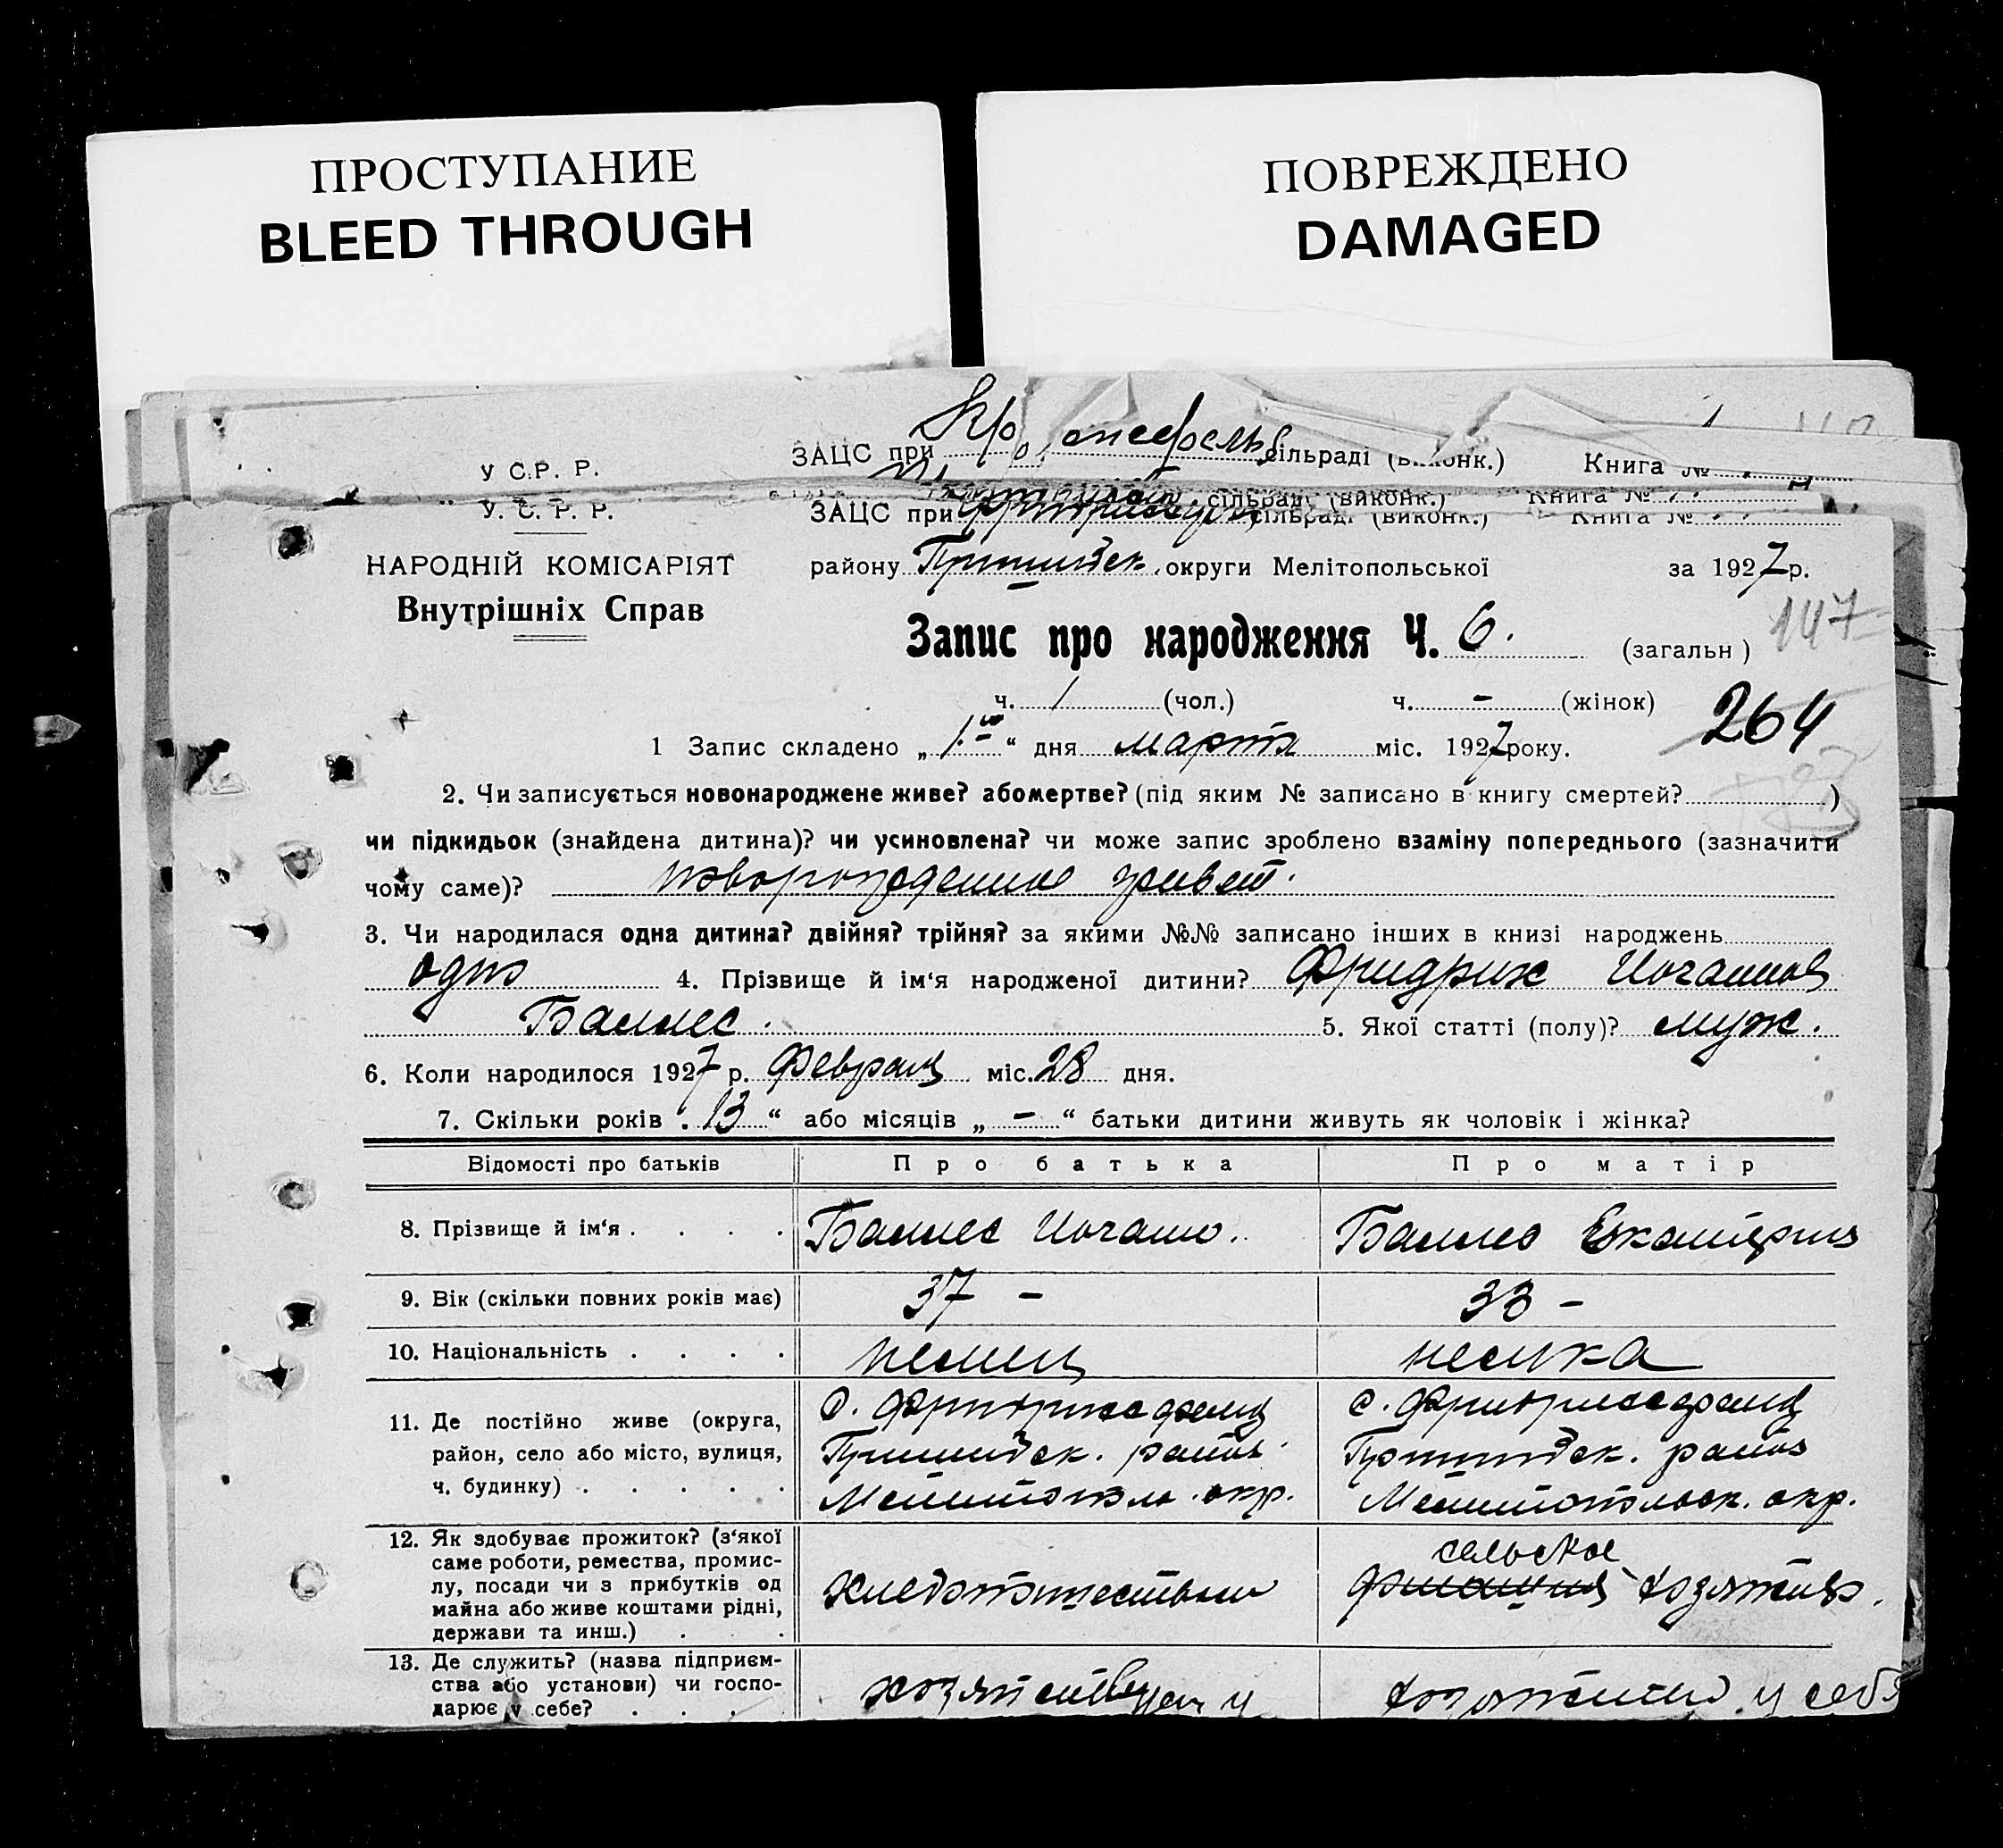 ПРОСТУПАНИЕ
BLEED THROUGH
ПОВРЕЖДЕНО
DAMAGED
У С.Р. Р. ЗАЦС при сільраді (виконк.) Книга №
сільраді (виконк.) Книга №
У. С. Р. Р. ЗАЦС при сільраді (виконк.) Книга №
НАРОДНІЙ КОМІСАРІЯТ району Пришибск. округи Мелітопольської за 1927 р.
Внутрішніх Справ
147
Запис про народження Ч. 6. (загальн)
ч. 1 (чол.) ч. - (жінок)
264
1 Запис складено „ 1.го “ дня марта міс. 1927 року.
2. Чи записується новонароджене живе? або мертве? (під яким № записано в книгу смертей? )
чи підкидьок (знайдена дитина)? чи усиновлена? чи може запис зроблено взаміну попереднього (зазначити
чому саме)? новорожденное живет.
3. Чи народилася одна дитина? двійня? трійня? за якими №№ записано інших в книзі народжень
один 4. Прізвище й ім‘я народженої дитини? Фридрих
5. Якої статті (полу)? муж.
6. Коли народилося 1927 р. Февраля міс. 28 дня.
7. Скільки років „ 13 “ або місяців „ - “ батьки дитини живуть як чоловік і жінка?
Відомості про батьків Про батька Про матір
8. Прізвище й ім‘я . . . . Екатерина
9. Вік (скільки повних років має) 37 - 33 -
10. Національність . . . . немец немка
11. Де постійно живе (округа, с. с.
район, село або місто, вулиця, Пришибск. района Пришибск. района
ч. будинку) . . . . . Мелитополь. окр. Мелитопольск. окр.
12. Як здобуває прожиток? (з‘якої сельское
саме роботи, ремества, промис-
лу, посади чи з прибутків од хлебопашеством хозяйство.
майна або живе коштами рідні,
держави та инш.) . . .
13. Де служить? (назва підприєм-
ства або установи) чи госпо- хозяйствует у у себя
дарює у себе? . . . .